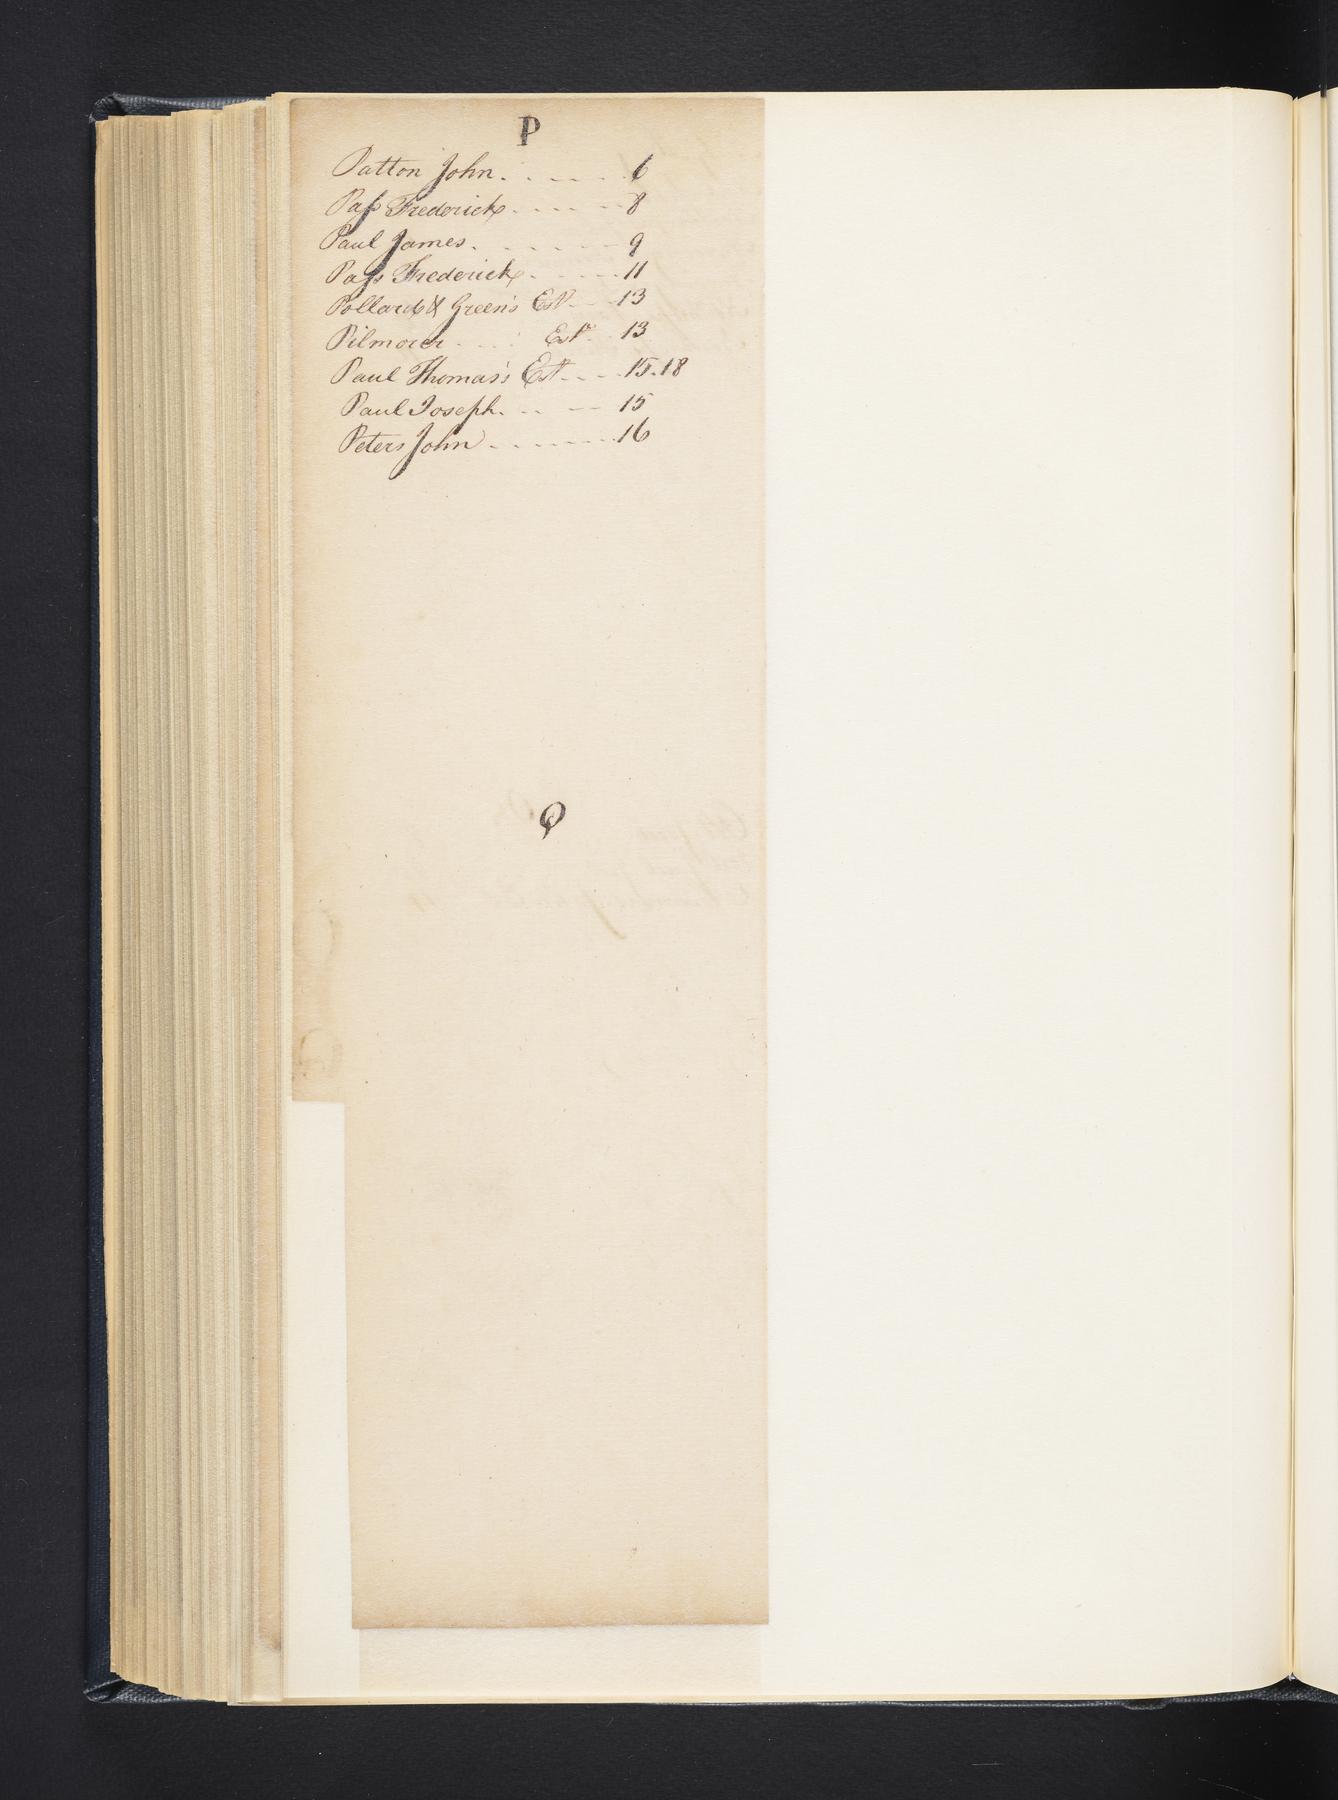 P
Patton John. . . . . . 6
Paſs Frederick . . . . . . 8
Paul James. . . . . . 9
Paſs Frederick . . . . . 11
Pollard & Green's Est. . . 13
Pilmorer . . . Est. . . 13
Paul Thomas's Est. . . . 15.18
Paul Joseph. . . . . 15
Peters John . . . . . . 16
Q